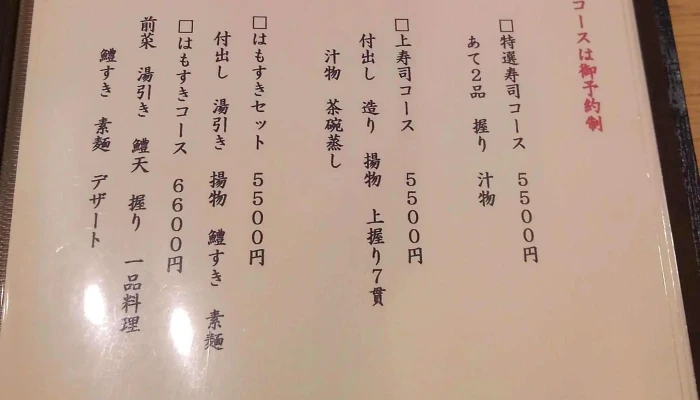 コースは御予約制
□特選寿司コース 5500円
あて2品 握り 汁物
□上寿司コース 5500円
付出し 造り 揚物 上握り7貫
汁物 茶碗蒸し
□はもすきセット 5500円
付出し 湯引き 揚物 鱧すき 素麺
□はもすきコース 6600円
前菜 湯引き 鱧天 握り 一品料理
鱧すき 素麺 デザート